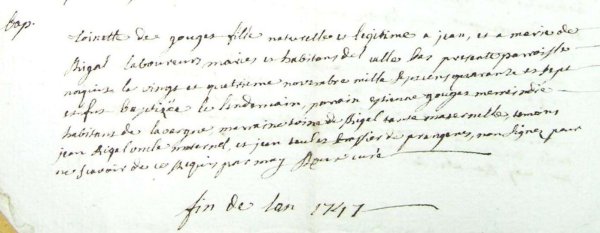 bap.
toinette de gouges fille naturelle et legitime a jean, et a marie de
Rigal laboureurs, maries et habitans de la presente parroisse
naquit le vingt et quatrieme novembre mille sept cens quarante et sept
et fut baptizée le lendemain, parrain estienne gouges
habitans de lavergne marraine toine de Rigal tante maternelle temoins
jean Rigal oncle maternel, et jean de prangeres, non signes pour
ne scavoir de ce Requis par moy curé
fin de lan 1747